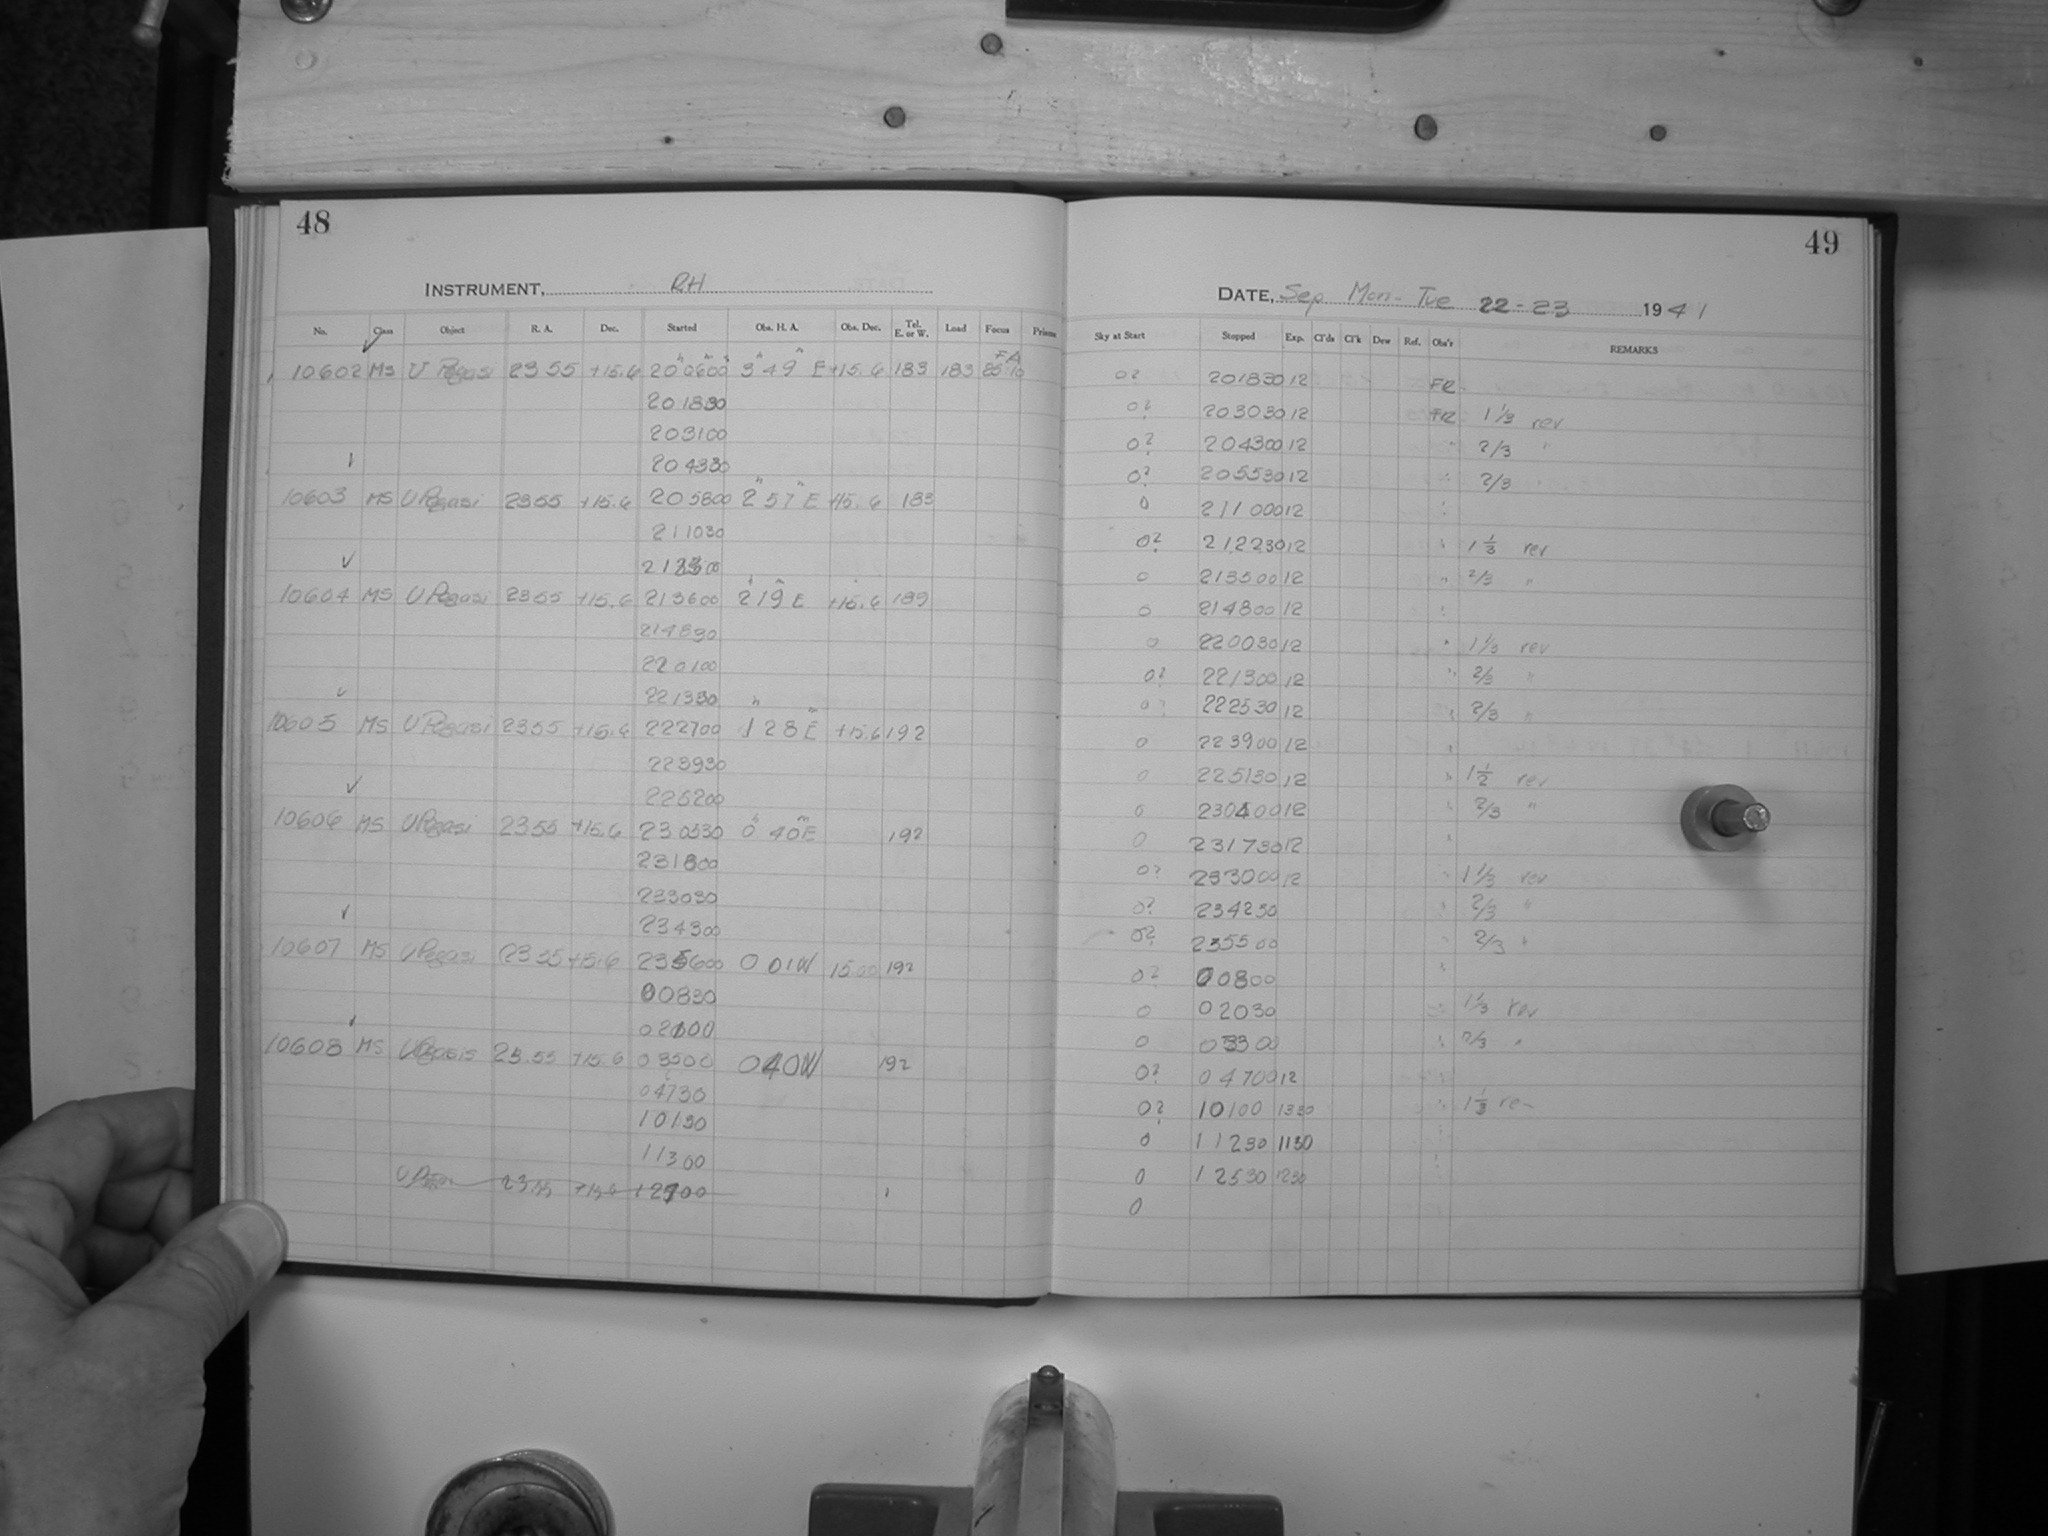 48
INSTRUMENT, RH
No. Class Object R. A. Dec. Started Obs. H. A. Obs. Dec. Tel. E. or W. Load Focus Prisms
10602 MS U Pegasi 23 55 +15.6 20 0600 3h 49m E +15.6 183 183 FA
20 1830
20 3100
20 4330
10603 MS U Pegasi 23 55 +15.6 20 5800 2h 57m E +15.6 183
21 1030
21 2300
10604 MS U Pegasi 23 55 +15.6 21 3600 2 19 E +15.6 189
21 4830
22 0100
22 1330
10605 MS U Pegasi 23 55 +15.6 22 2700 1 28 E +15.6 192
22 3930
22 5200
10606 MS U Pegasi 23 55 +15.6 23 0530 0h 40m E 192
23 1800
23 3030
23 4300
10607 MS U Pegasi 23 55 +15.6 23 5600 0 01 W 192
0 0830
0 2100
10608 MS 23.55 +15.6 0 3500 0 40 W 192
0 4730
1 0130
1 1300
23.55 +15.6 1 2700
49
DATE, Sep Mon-Tue 22-23 1941
Sky at Start Stopped Exp. Cl'ds Cl'k Dew Ref. Obs'r REMARKS
0? 20 1830 12 FR
0? 20 3030 12 FR 1 1/3 rev
0? 20 4300 12 " 2/3 "
0? 20 5530 12 " 2/3
0 21 1000 12 "
0? 21 2230 12 " 1 1/3 rev
0 21 3500 12 " 2/3 "
0 21 4800 12 "
0 22 0030 12 " 1 1/3 rev
0? 22 1300 12 " 2/3 "
0? 22 2530 12 " 2/3 "
0 22 3900 12 "
0 22 5130 12 " 1 1/2 rev
0 23 0400 12 " 2/3 "
0 23 1730 12 "
0? 23 3000 12 " 1 1/3 rev
0? 23 4230 " 2/3 "
0? 23 5500 " 2/3 "
0? 0 0800 "
0 0 2030 1 1/3 rev
0 0 3300 " 2/3 "
0? 0 4700 12
0? 1 0100 1330 " 1 1/3 rev
0 1 1230 1130
0 1 2530 1230
0